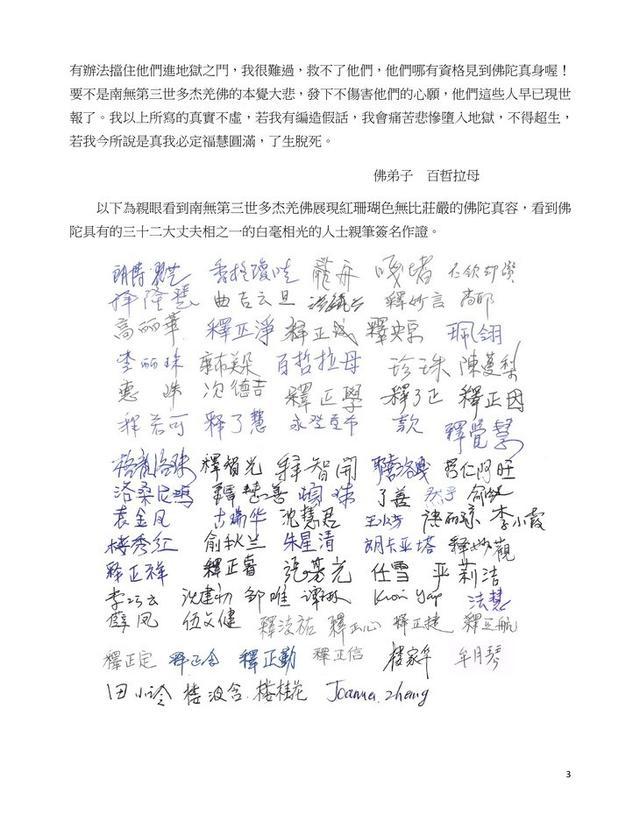 有辦法擋住他們進地獄之門，我很難過，救不了他們，他們哪有資格見到佛陀真身喔！
要不是南無第三世多杰羌佛的本覺大悲，發下不傷害他們的心願，他們這些人早已現世
報了。我以上所寫的真實不虛，若我有編造假話，我會痛苦悲慘墮入地獄，不得超生，
若我今所說是真我必定福慧圓滿，了生脫死。
佛弟子　百哲拉母
以下為親眼看到南無第三世多杰羌佛展現紅珊瑚色無比莊嚴的佛陀真容，看到佛
陀具有的三十二大丈夫相之一的白毫相光的人士親筆簽名作證。
香格瓊哇 龍舟 嘎堵
釋隆慧 曲吉云旦 釋妙言
高丽華 釋正淨 釋正成 釋央宗 珮翎
李丽珠 百哲拉母 珍珠 陳蔓梨
惠姝 次德吉 釋正學 釋了正 釋正因
釋若可 釋了慧 款 釋覺慧
釋智光 釋智開 君仁阿旺
洛桑尼瑪 了善
袁金凤 古瑞华 沈慧君 李小霞
楼秀红 俞秋兰 朱星清 胡卡亚塔 釋妙觀
釋正祥 釋正睿 任雪 严莉洁
李巧云 沈建初 邹唯 Kwai Yap 法慧
薛凤 伍文健 釋正心 釋正捷
釋正定 釋正念 釋正勤 釋正信 楼家年 牟月琴
田小泠 楼波含 楼桂花 Joanna.zheng
3